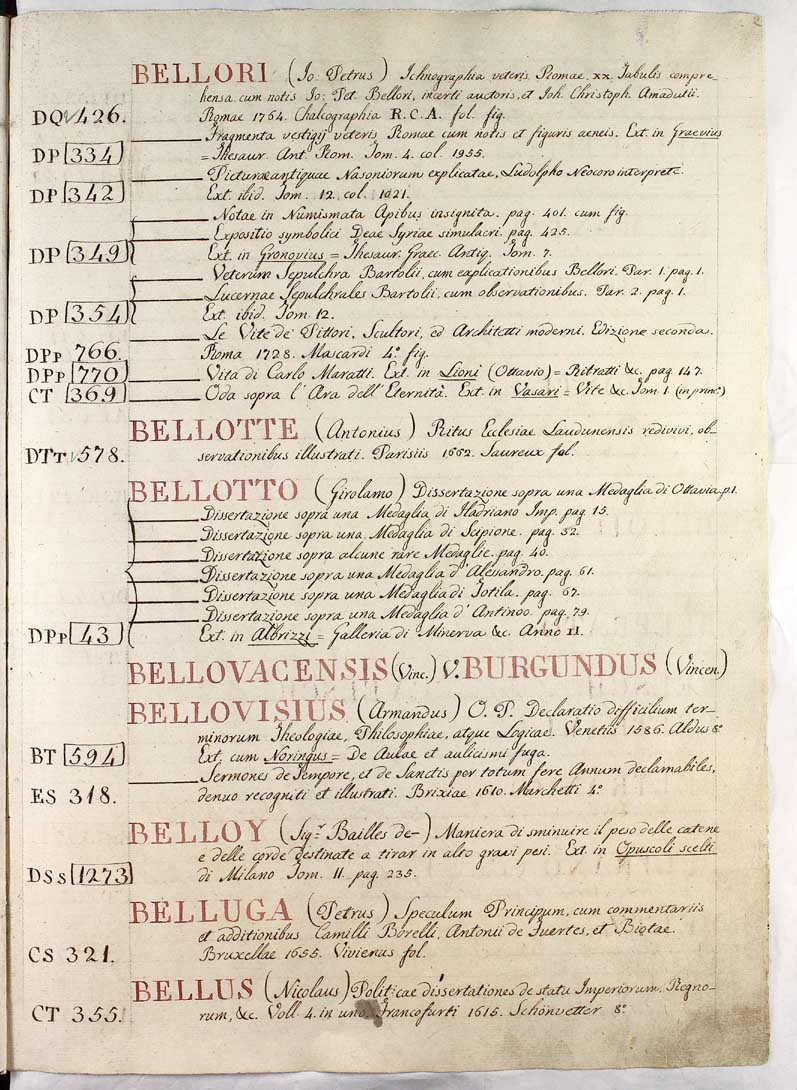 BELLORI (Io: Petrus) Ichnographia veteris Romae. xx. Tabulis compre-
hensa cum notis Io: Pet. Bellori, incerti auctoris, et Ioh. Christoph. Amadutii.
DQ 426. Romae 1764. Chalcographia R.C.A. fol. fig.
Fragmenta vestigij veteris Romae cum notis et figuris aeneis. Ext. in Graevius
DP 334 = Thesaur. Ant. Rom. Tom. 4. col. 1955.
Picturae antiquae Nasoniorum explicatae, Ludolpho Neocoro interprete.
DP 342 Ext. ibid. Tom. 12. col. 1021.
Notae in Numismata Apibus insignita. pag. 401. cum fig.
Expositio symbolici Deae Syriae simulacri. pag. 425.
DP 349 Ext. in Gronovius = Thesaur. Graec. Antiq. Tom. 7.
Veterum Sepulchra Bartolii, cum explicationibus Bellori. Par. 1. pag. 1.
Lucernae Sepulchrales Bartolii, cum observationibus. Par. 2. pag. 1.
DP 354 Ext. ibid. Tom. 12.
Le Vite de' Pittori, Scultori, ed Architetti moderni. Edizione seconda.
DPp 766. Roma 1728. Mascardi 4.º fig.
DPp 770 Vita di Carlo Maratti. Ext. in Lioni (Ottavio) = Ritratti &c. pag. 147.
CT 369 Oda sopra l'Ara dell'Eternità. Ext. in Vasari = Vite &c. Tom. 1. (in princ.º)
BELLOTTE (Antonius) Ritus Ecclesiae Laudunensis redivivi, ob-
DTt 578. servationibus illustrati. Parisiis 1662. Saureux fol.
BELLOTTO (Girolamo) Dissertazione sopra una Medaglia di Ottavia. p. 1.
Dissertazione sopra una Medaglia di Hadriano Imp. pag. 15.
Dissertazione sopra una Medaglia di Scipione. pag. 52.
Dissertazione sopra alcune rare Medaglie. pag. 40.
Dissertazione sopra una Medaglia d'Alessandro. pag. 61.
Dissertazione sopra una Medaglia di Totila. pag. 67.
Dissertazione sopra una Medaglia d'Antinoo. pag. 79.
DPp 43 Ext. in Albrizzi = Galleria di Minerva &c. Anno II.
BELLOVACENSIS (Vinc.) V. BURGUNDUS (Vincen.)
BELLOVISIUS (Armandus) O. P. Declaratio difficilium ter-
minorum Theologiae, Philosophiae, atque Logicae. Venetiis 1586. Aldus 8.º
BT 594 Ext. cum Noringus = De Aulae et aulicismi fuga.
Sermones de Tempore, et de Sanctis per totum fere Annum declamabiles,
ES 318. denuo recogniti et illustrati. Brixiae 1610. Marchetti 4.º
BELLOY (Sig.r Bailles de-) Maniera di sminuire il peso delle catene
e delle corde destinate a tirar in alto gravi pesi. Ext. in Opuscoli scelti
DSs 1273 di Milano Tom. 11. pag. 235.
BELLUGA (Petrus) Speculum Principum, cum commentariis
et additionibus Camilli Borelli, Antonii de Fuertes, et Biotae.
CS 321. Bruxellae 1655. Vivienus fol.
BELLUS (Nicolaus) Politicae dissertationes de statu Imperiorum, Regno-
CT 355. rum, &c. Voll. 4. in uno. Francofurti 1615. Schönvetter 8.º